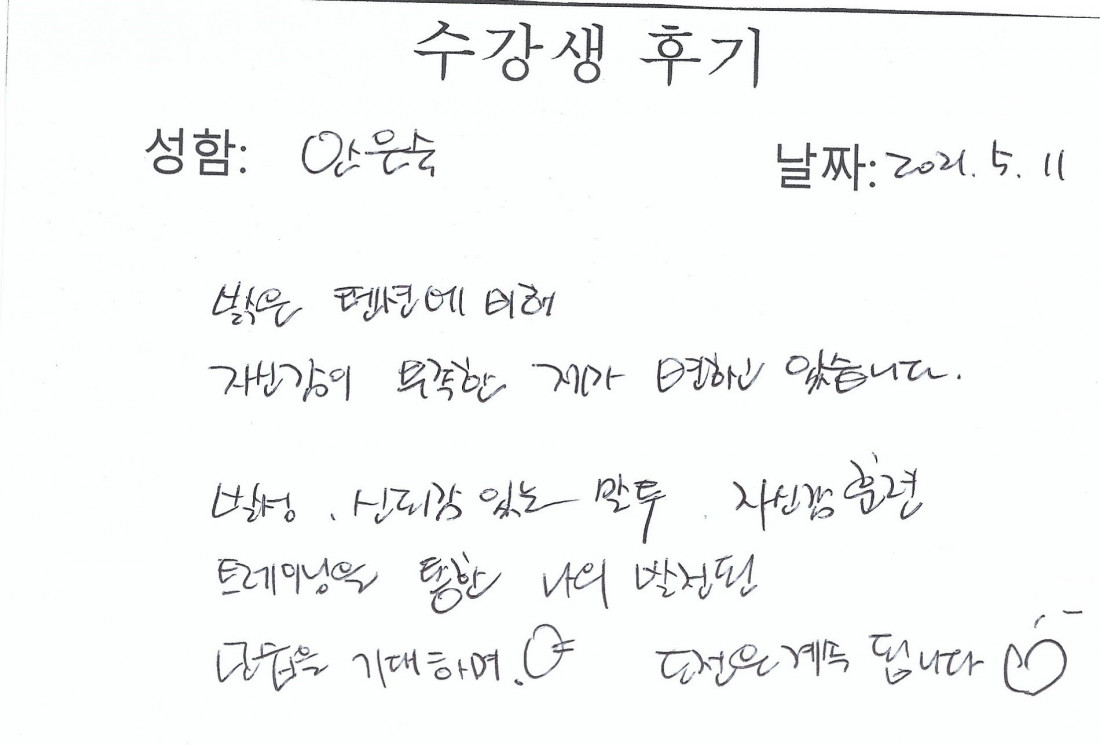 수강생 후기
성함: 안은숙 날짜: 2021. 5. 11
밝은 텐션에 비해
자신감이 부족한 제가 변하고 있습니다.
발성, 신뢰감 있는 말투, 자신감 훈련
트레이닝을 통한 나의 발전된
모습을 기대하며. 도전은 계속 됩니다